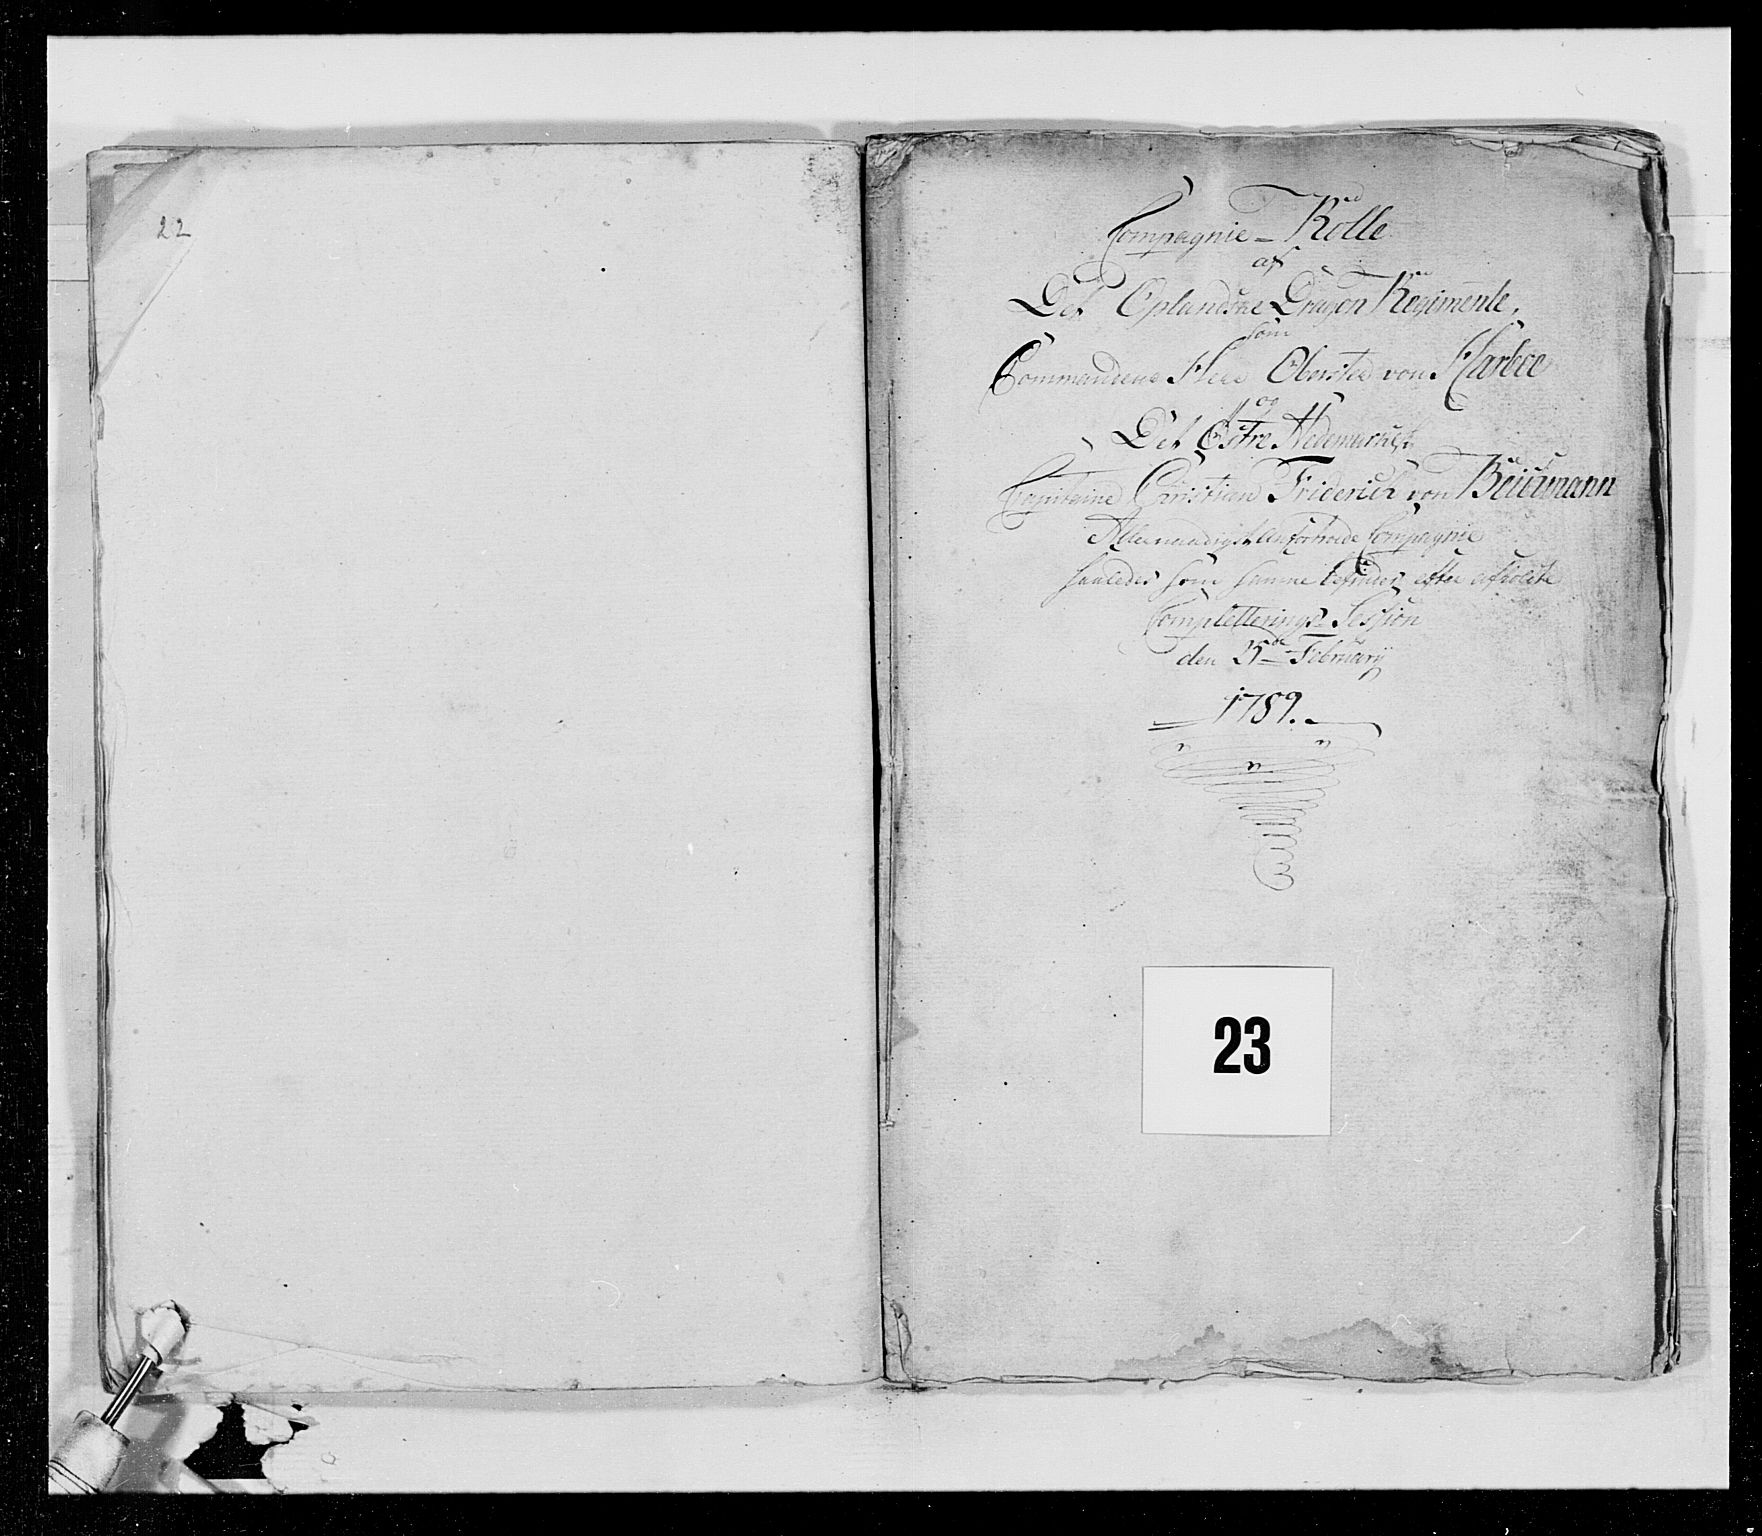 22
Compagnie-Rolle
af
Det Oplandske Dragon Regimente,
som
Commanderes Herr Oberster von
og
Det Østre Hedemarkske
Capitaine Christian Friderich von
Allernaadigst Anfortroede Compagnie
saaledes som samme befindes efter afholdte
Completterings-Session
den 25de February
1789.
23